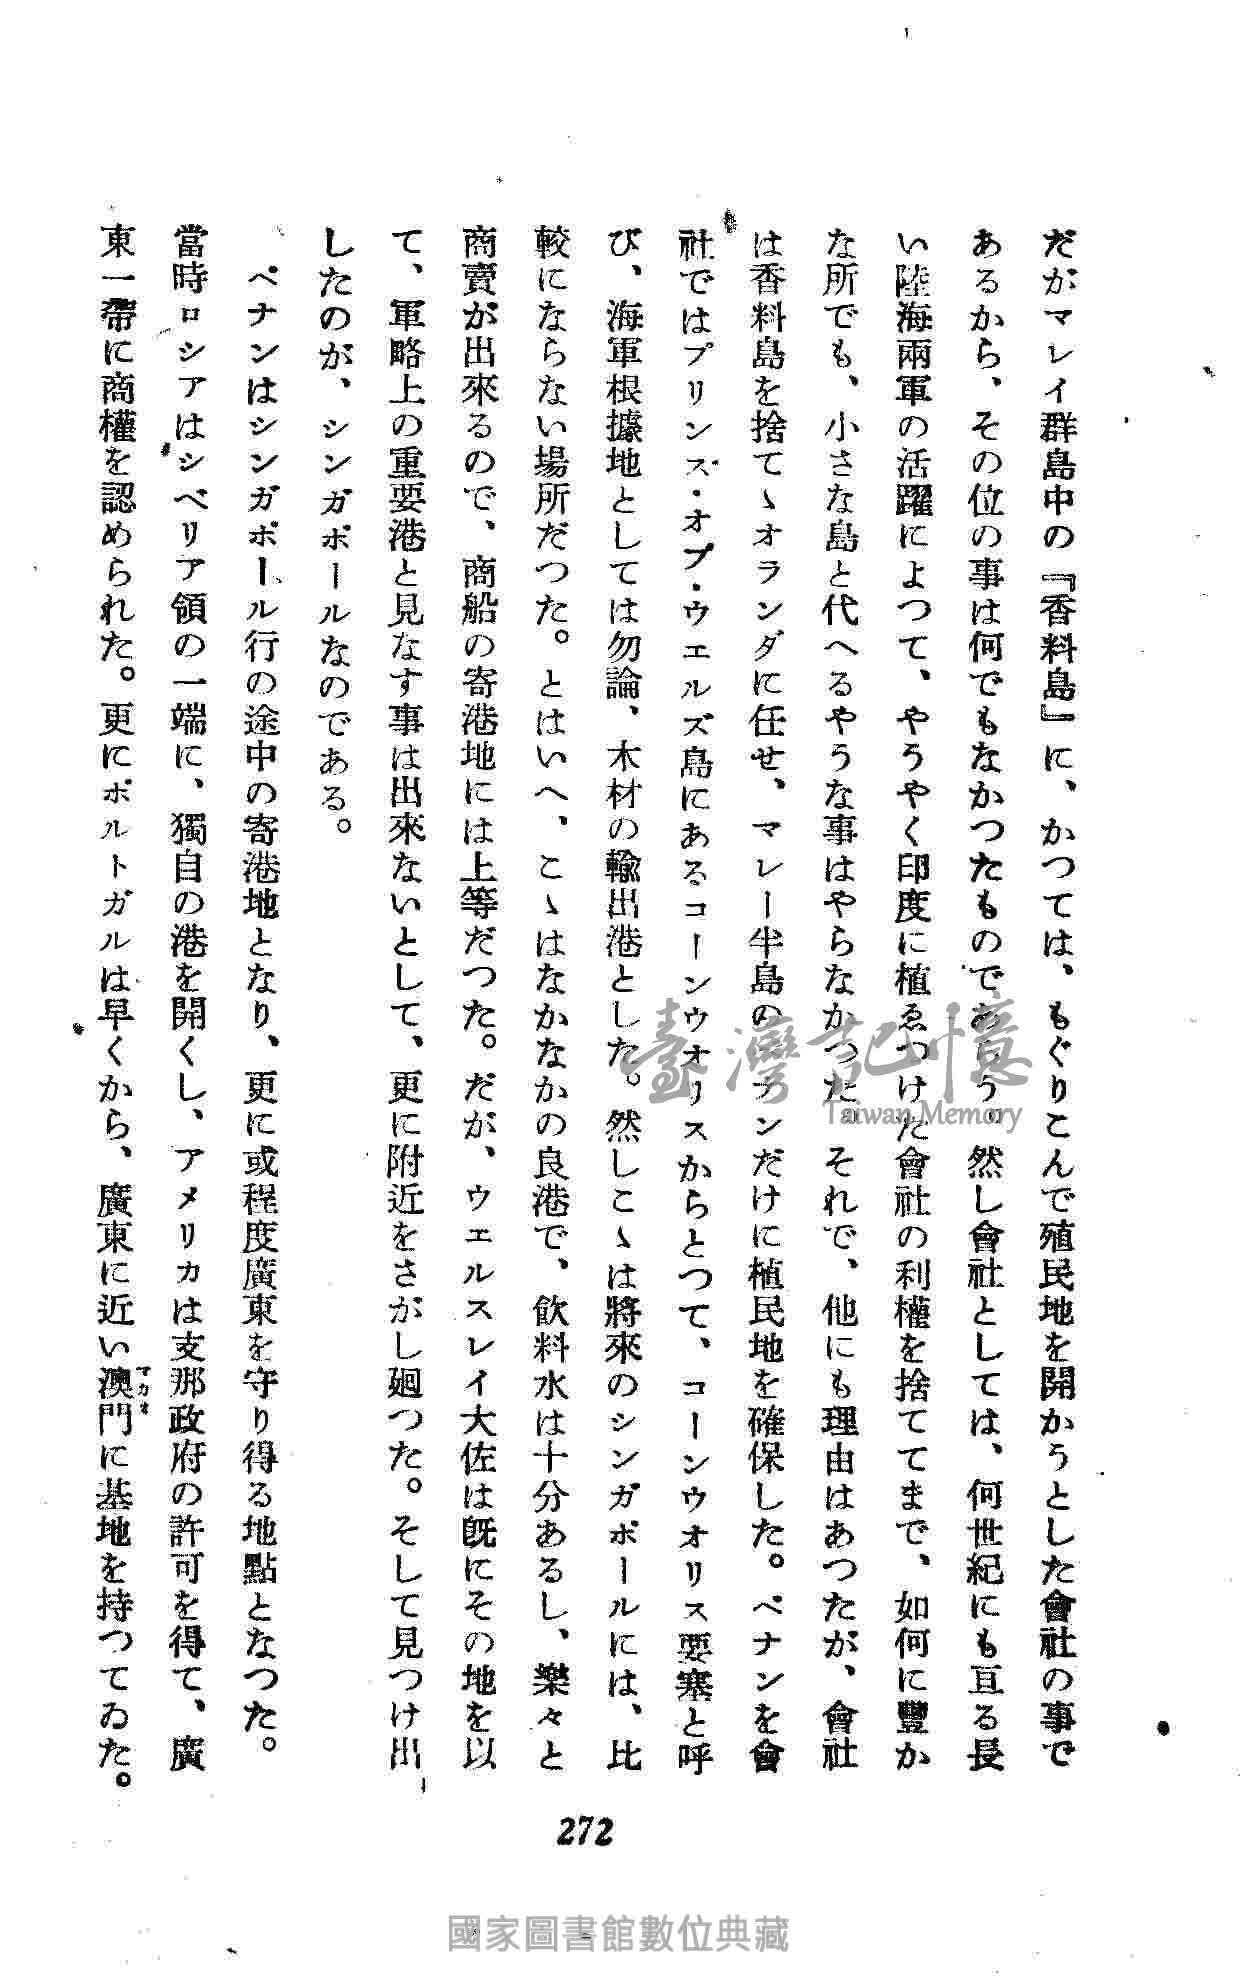 だがマレイ群島中の『香料島』に、かつては、もぐりこんで殖民地を開かうとした會社の事で
あるから、その位の事は何でもなかつたものであらう。然し會社としては、何世紀にも亘る長
い陸海兩軍の活躍によつて、やうやく印度に植ゑつけた會社の利權を捨ててまで、如何に豐か
な所でも、小さな島と代へるやうな事はやらなかつた。それで、他にも理由はあつたが、會社
は香料島を捨てゝオランダに任せ、マレー半島のペナンだけに植民地を確保した。ペナンを會
社ではプリンズ・オブ・ウエルズ島にあるコーンウオリスからとつて、コーンウオリス要塞と呼
び、海軍根據地としては勿論、木材の輸出港とした。然しこゝは將來のシンガポールには、比
較にならない場所だつた。とはいへ、こゝはなかなかの良港で、飮料水は十分あるし、樂々と
商賣が出來るので、商船の寄港地には上等だつた。だが、ウエルスレイ大佐は旣にその地を以
て、軍略上の重要港と見なす事は出來ないとして、更に附近をさがし廻つた。そして見つけ出
したのが、シンガポールなのである。
ペナンはシンガポール行の途中の寄港地となり、更に或程度廣東を守り得る地點となつた。
當時ロシアはシベリア領の一端に、獨自の港を開くし、アメリカは支那政府の許可を得て、廣
東一帶に商權を認められた。更にポルトガルは早くから、廣東に近い澳門に基地を持つてゐた。
マカオ
272
臺灣記憶
Taiwan Memory
國家圖書館數位典藏